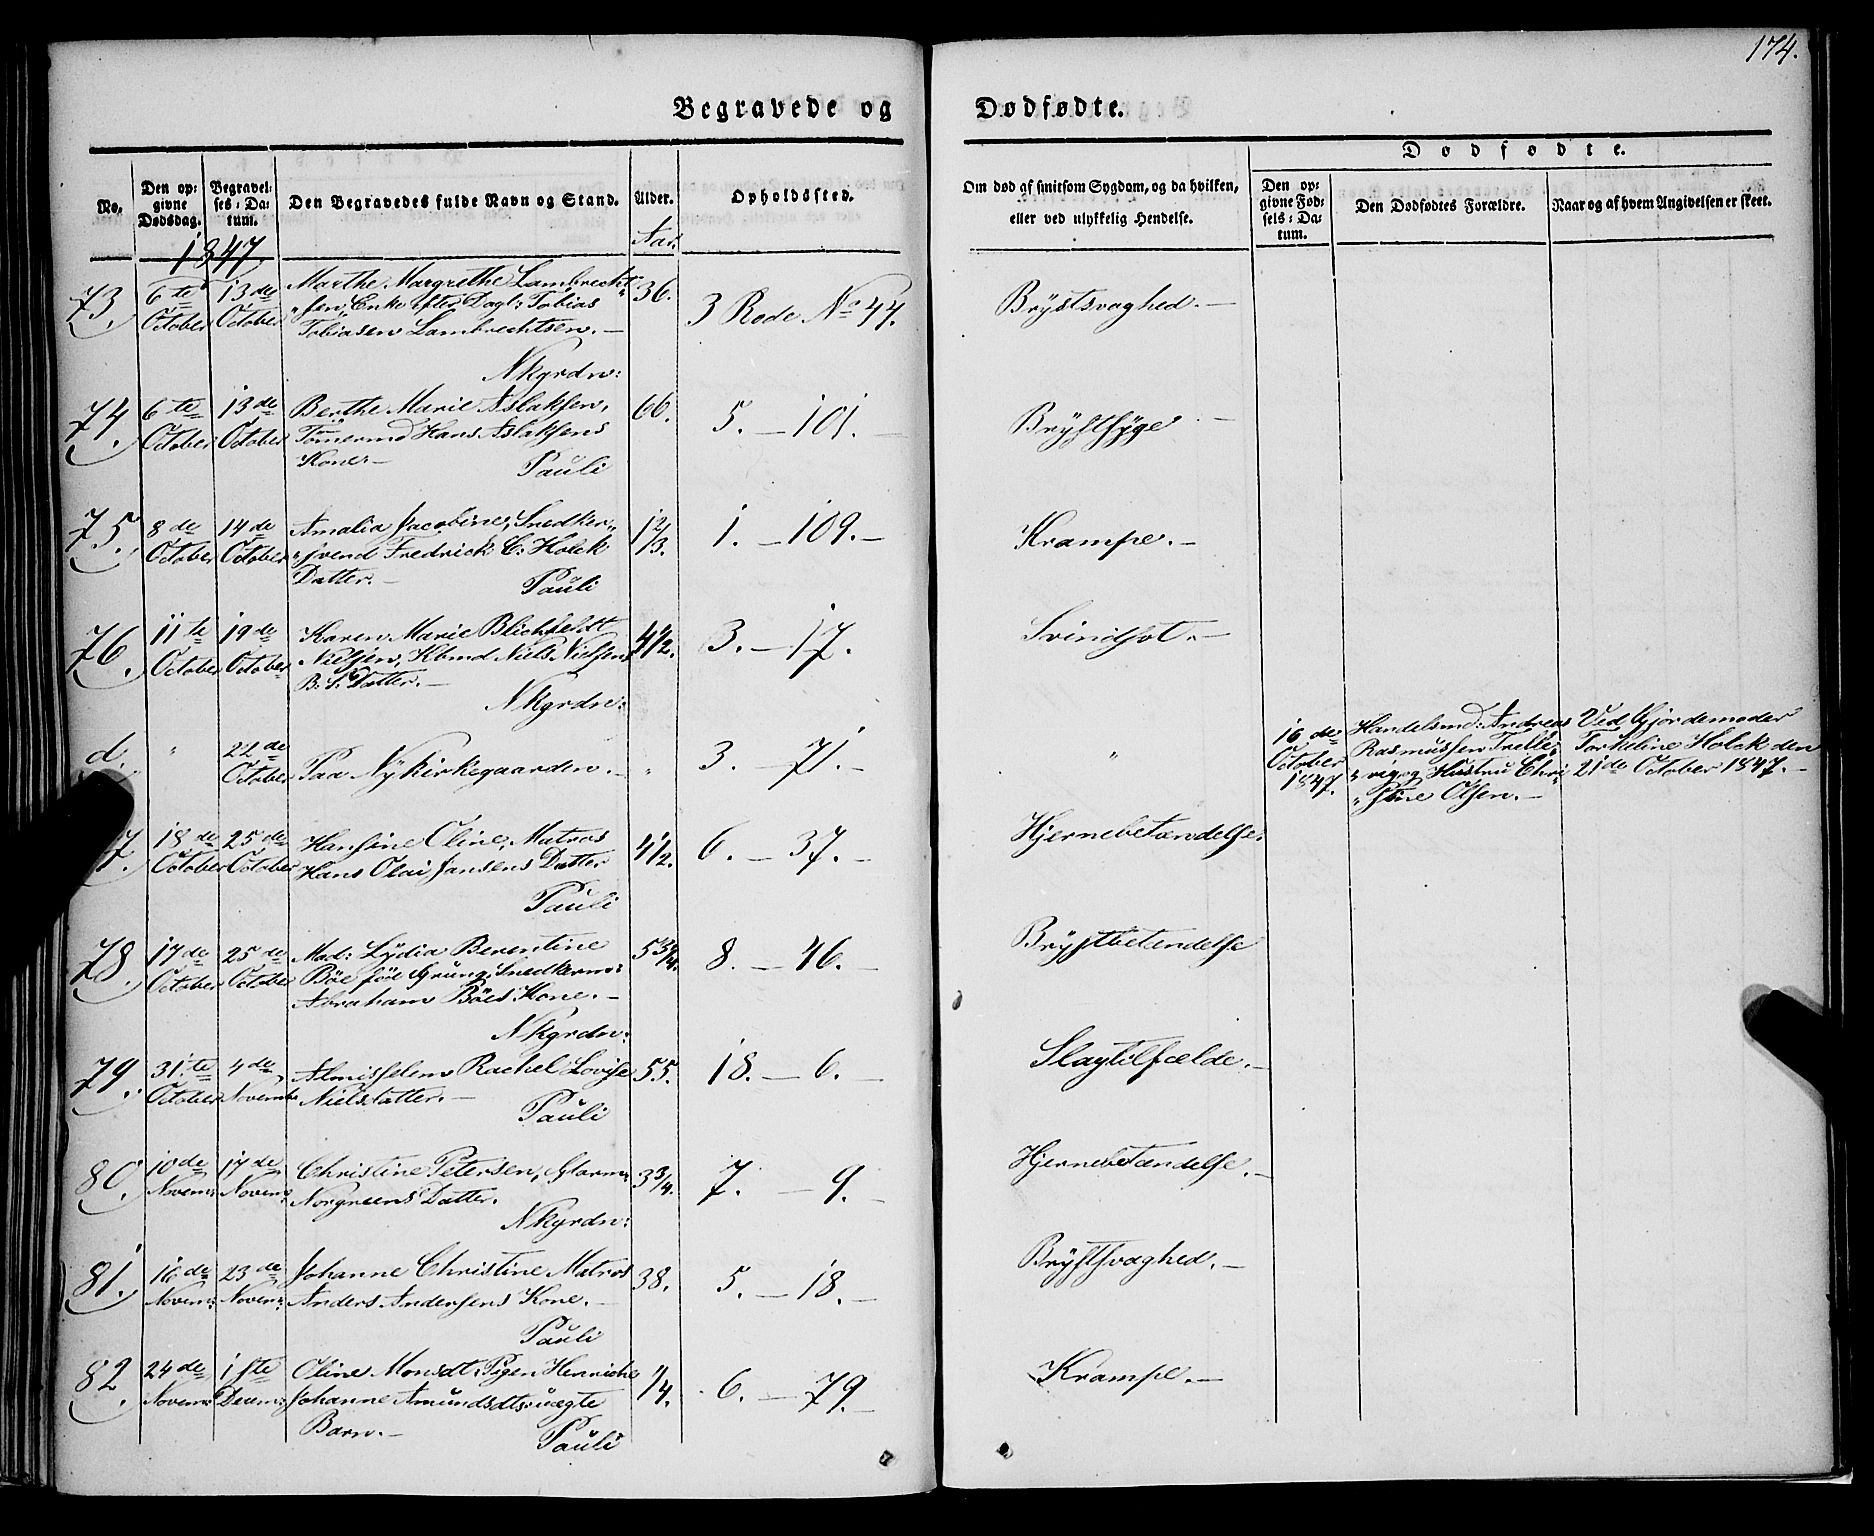 174.
Begravede og Dødfødte.
No.
Den op-
givne
Dødsdag.
Begravel-
ses-Da-
tum.
Den Begravedes fulde Navn og Stand.
Alder.
Opholdssted.
Om død af smitsom Sygdom, og da hvilken,
eller ved ulykkelig Hendelse.
Dødfødte.
Den op-
givne Fød-
sels-Da-
tum.
Den Dødfødtes Forældre.
Naar og af hvem Angivelsen er skeet.
1847.
Aar.
73.
6te
October
13de
October
Marthe Margrethe Lambrecht-
"sen, Enke efter Dagl: Tobias
Tobiasen Lambrechtsen.—
Nkgrdn:
36.
3 Rode No 44.
Brystsvaghed.—
74.
6te
October
13de
October
Berthe Marie Aslaksen,
Tømermd Hans Aslaksens
Kone.—
Pauli
66.
5. — 101. —
Brystsyge —
75.
8de
October
14de
October
Amalia Jacobine, Snedker"
"svend Fredrick C: Holck
Datter.—
Pauli
1 2/3.
1. — 109. —
Krampe.—
76.
11te
October
19de
October
Karen Marie Blichfeldt
Nielsen, Kbmd Niels Nielsen
B: S: Datter.—
Nkgrdn:
4 1/2.
3. — 17.
Svindsot.—
d.
"
22de
October
Paa Nykirkegaarden.—
"
3. — 71. —
"
16de
October
1847.
Handelsmd: Andreas
Rasmussen Trelle-
"vig og Hustru Chri-
"stine Olsen.—
Ved Gjordemoder
Torkeline Holck den
21de October 1847.—
77.
18de
October
25de
October
Hansine Oline, Matros
Hans Olai Jansens Datter
Pauli
4 1/2.
6. — 37. —
Hjernebetændelse.
78.
17de
October
25de
October
Mad: Lydia Berentine
Böe föd Grung, Snedkerm:
Abraham Böes Kone.—
Nkgrdn:
53 3/4.
8. — 46. —
Brystbetændelse
79.
31te
October
4de
Novembr
Almisselem Rachel Lovise
Nielsdatter.—
Pauli
55.
18. — 6. —
Slagtilfælde.—
80.
10de
Novem:
17de
Novem:
Christine Petersen,
Norgreens Datter.
Nkgrdn:
3 3/4.
7. — 9. —
Hjernebetændelse.—
81.
16de
Novem:
23de
Novem:
Johanne Christine Matros
Anders Andersens Kone.—
Pauli
38.
5. — 18. —
Brystsvaghed.—
82.
24de
Novem:
1ste
Decem:
Oline Monsdt: Pigen Henriche
Johanne Amundsdts: uægte
Barn.—
Pauli
1/4.
6. — 79. —
Krampe.—